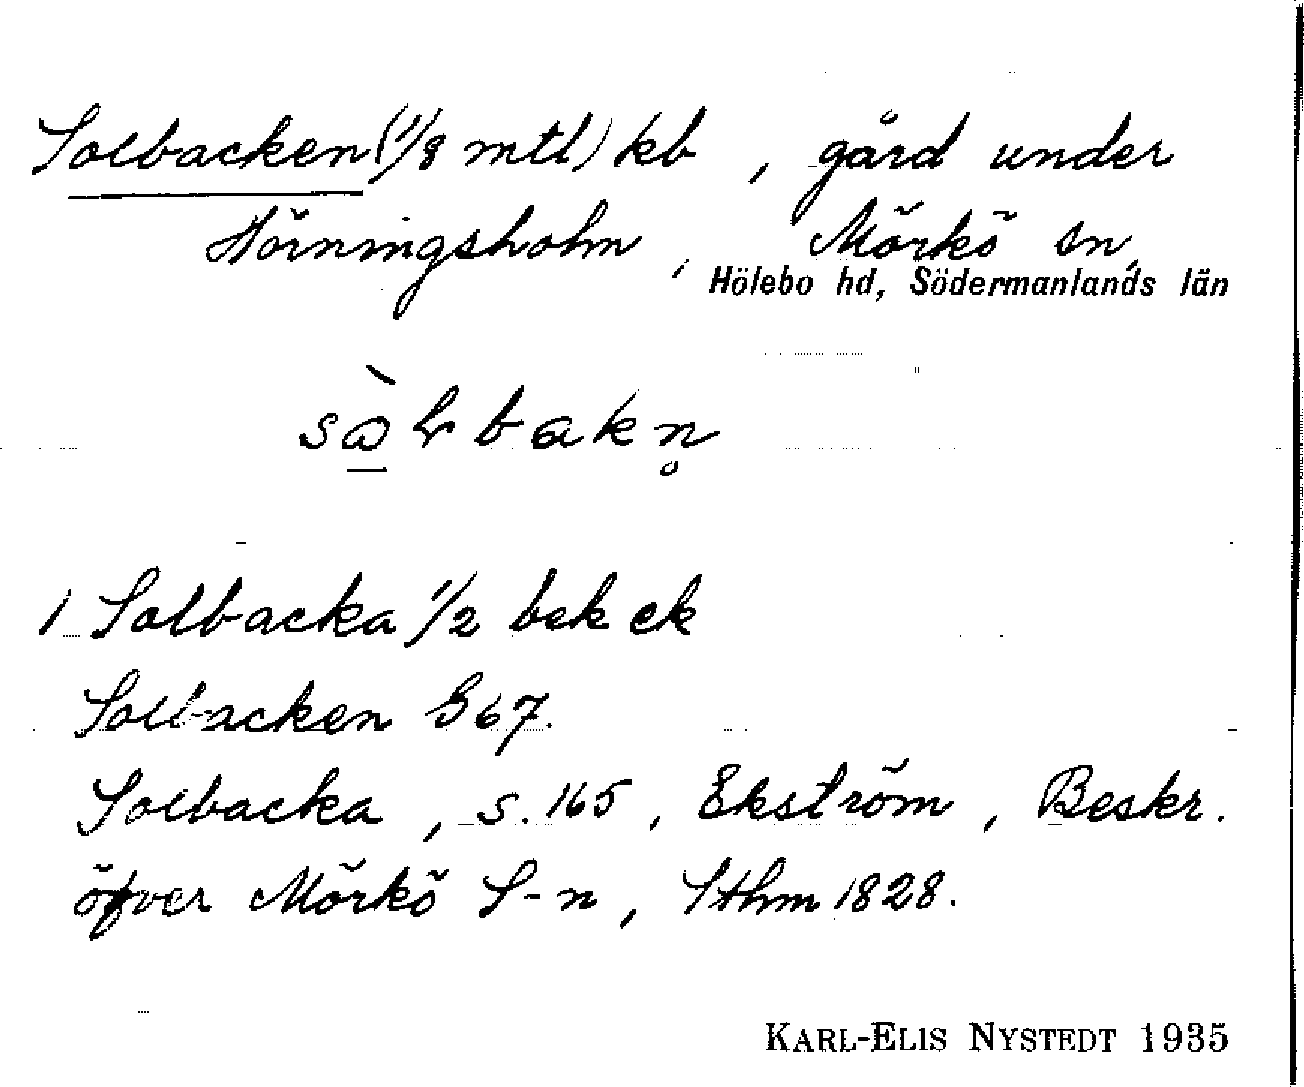 Solbacken (1/8 mtl) kb, gård under
Hörningsholm, Mörkö sn,
Hölebo hd, Södermanlands län
1 Solbacka 1/2 bek ek
Solbacken G67.
Solbacka, s. 165, Ekström, Beskr.
öfver Mörkö S-n, Sthm 1828.
KARL-ELIS NYSTEDT 1935